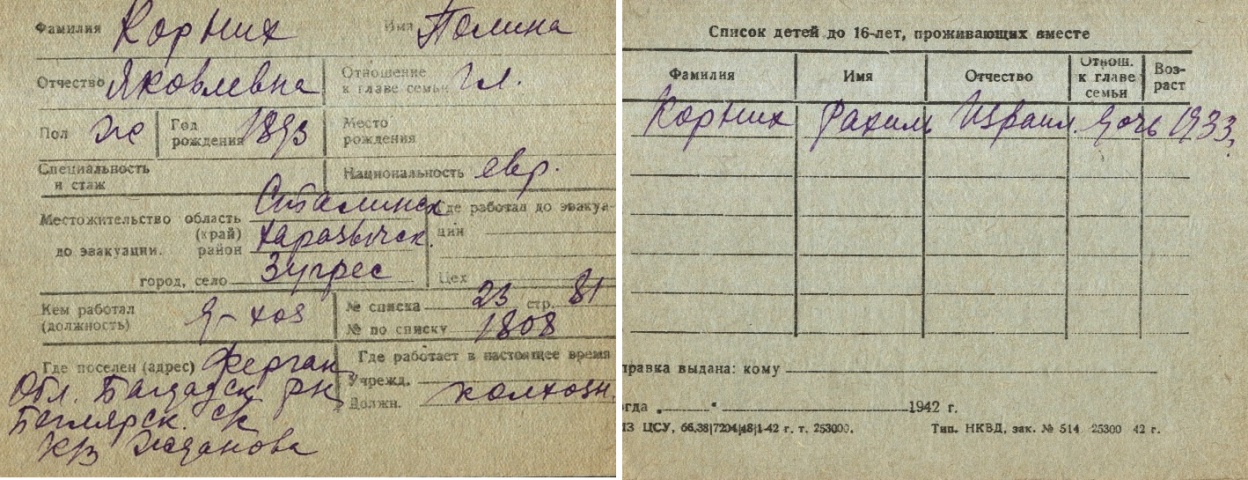 Фамилия Корних Имя Полина
Отчество Яковлевна Отношение к главе семьи гл.
Пол ж Год рождения 1893 Место рождения
Специальность и стаж Национальность евр.
Местожительство до эвакуации. область (край) Сталинск Где работал до эвакуа-
район Харцызск. ции
город, село Зугрес Цех
Кем работал (должность) д-хоз № списка 23 стр. 81
№ по списку 1808
Где поселен (адрес) Ферган Где работает в настоящее время
Обл. Багдадск рн Учрежд.
колхозн. Должн.
Беглярск. с/с
к/з Жданова
Список детей до 16-лет, проживающих вместе
Фамилия Имя Отчество Отнош. к главе семьи Воз-раст
Корних Рахиль Израил. дочь 1933
правка выдана: кому
огда 1942 г.
ИЗ ЦСУ, 66,38|7204|48|1-42 г. т. 253000. Тип. НКВД, зак. № 514 25300 42 г.